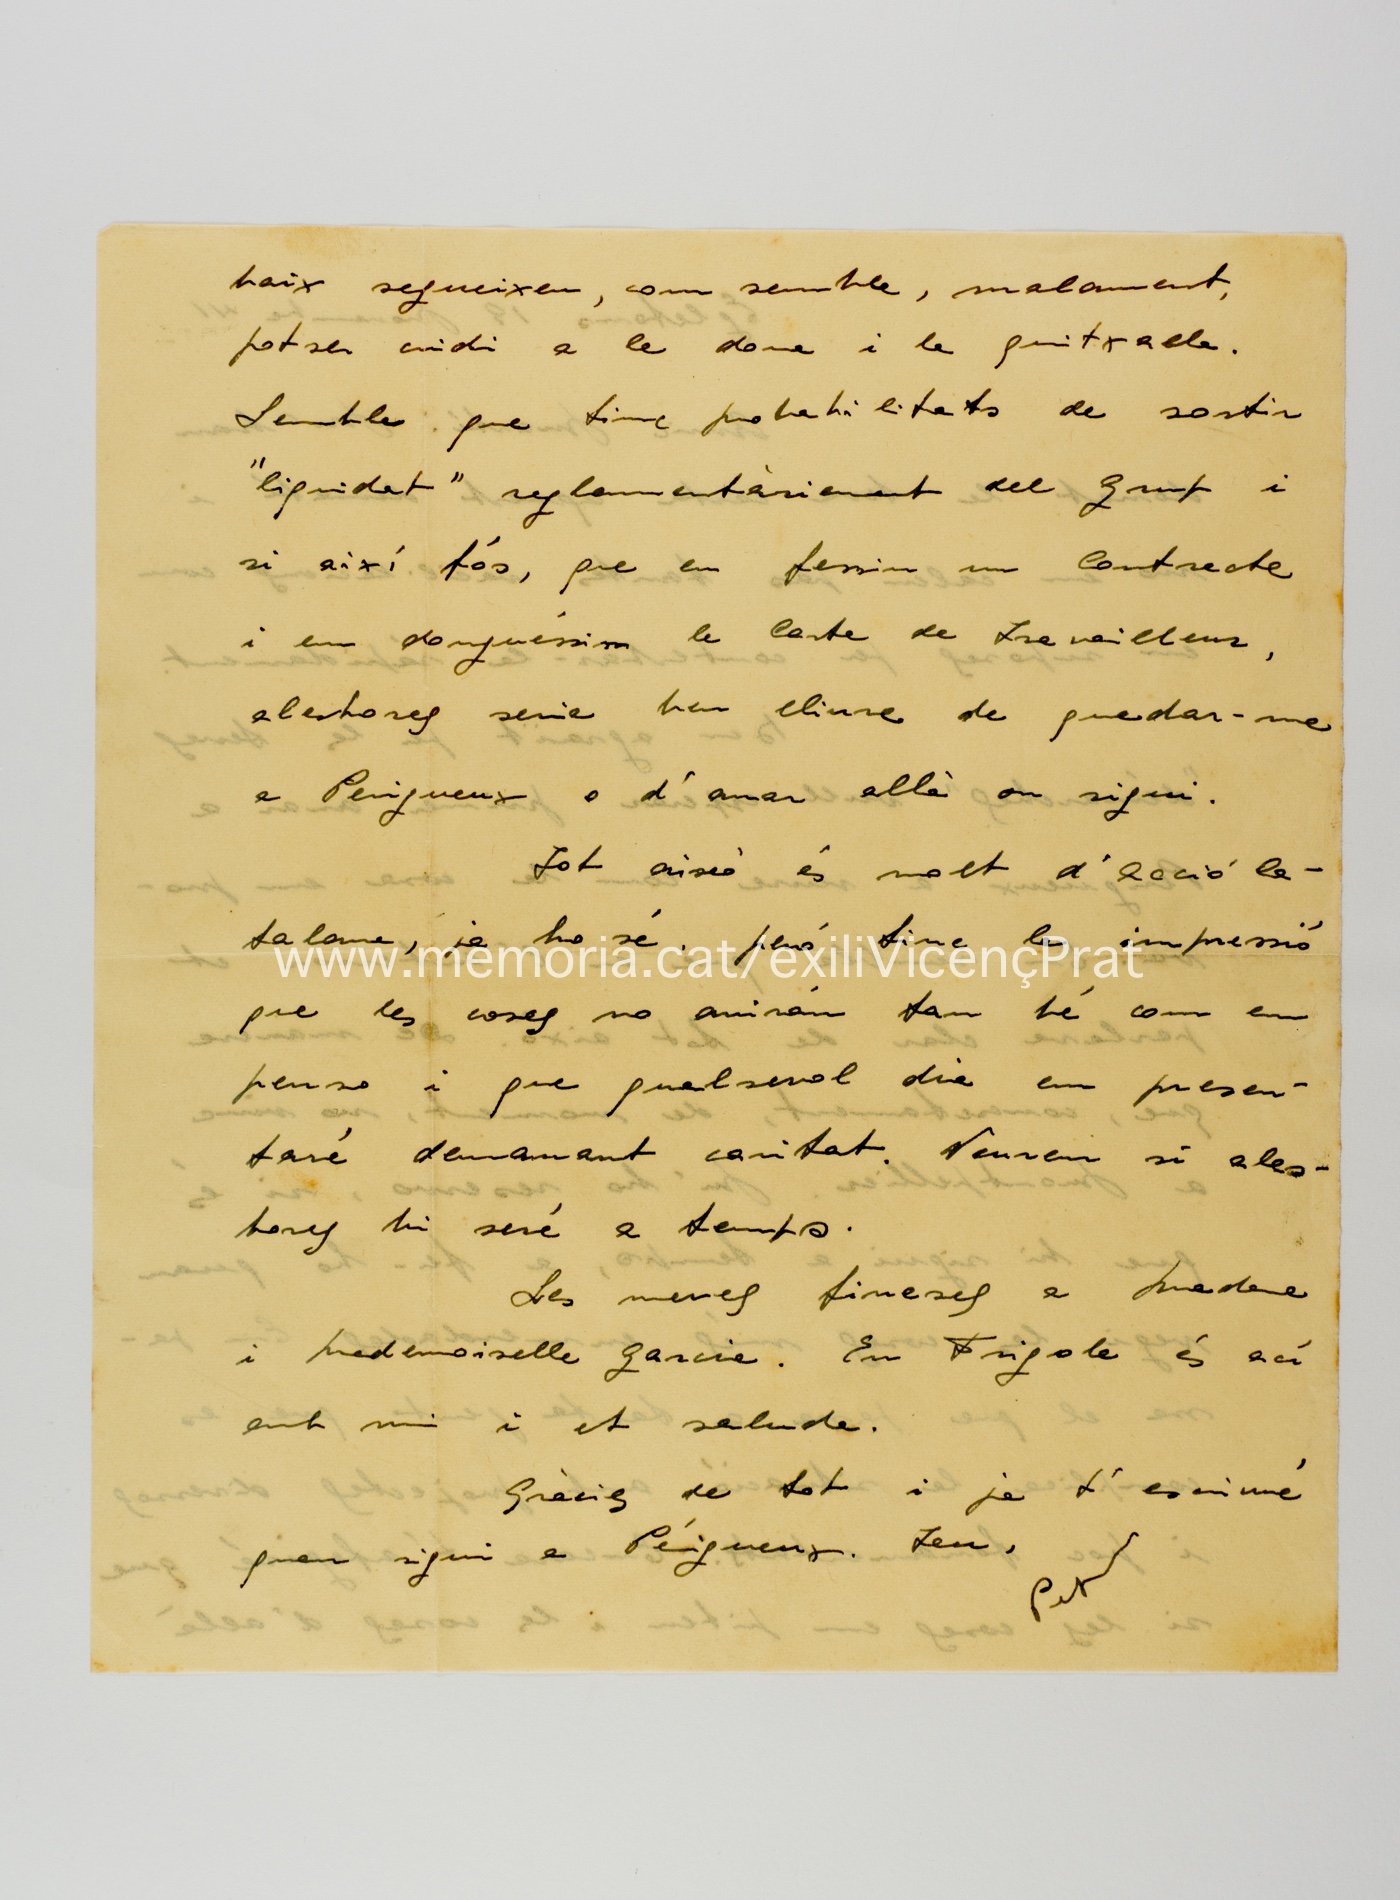 baix segueixen, com sembla, malament,
potser cridi a la dona i la quitxalla.
Sembla que tinc probabilitats de sortir
"liquidat" reglamentàriament del Grup i
si així fós, que em fessin un Contracte
i em donguéssim la Carte de Travailleur,
aleshores seria ben lliure de quedar-me
a Perigueux o d'anar allà on sigui.
Tot aixó és molt d'acció ca-
talana, ja ho sé, peró tinc la impressió
que les coses no anirán tan bé com em
penso i que qualsevol dia em presen-
taré demanant caritat. Veurem si ales-
hores hi seré a temps.
Les meves fineses a madame
i mademoiselle Garcia. En Frigola és ací
amb mi i et saluda.
Gràcies de tot i ja t'escriuré
quan sigui a Périgueux. Teu,
www.memoria.cat/exiliVicençPrat